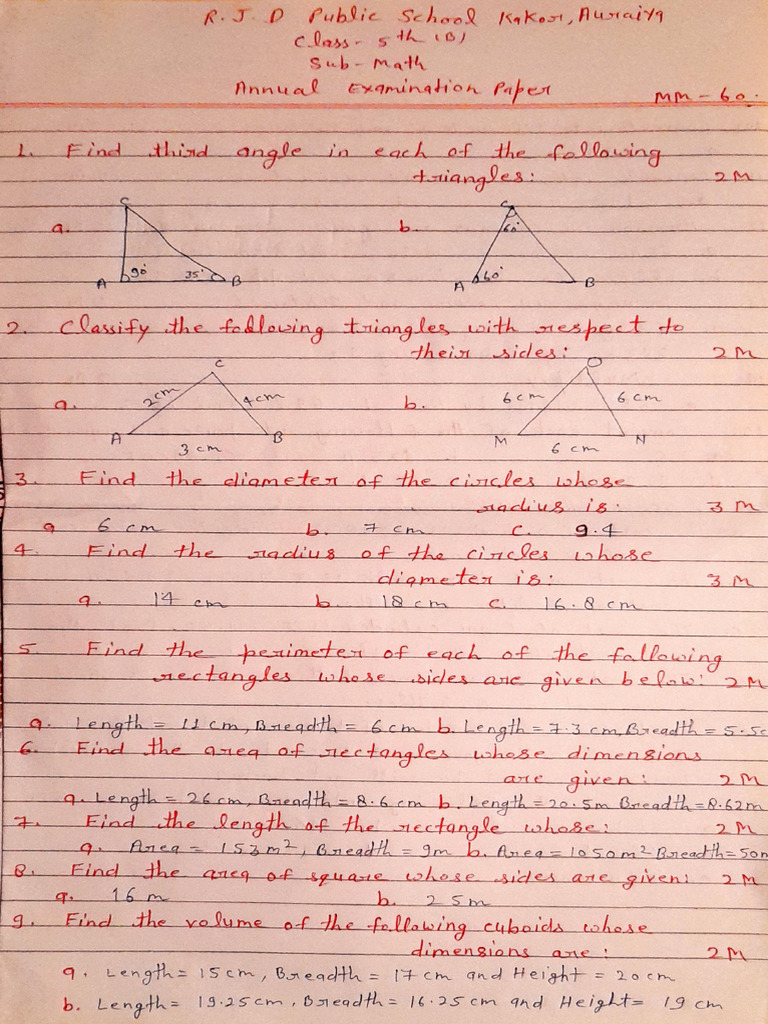 R. J. D Public School Kakor, Auraiya
Class - 5th (B)
Sub - Math
Annual Examination Paper
MM - 60.
1. Find third angle in each of the following
triangles: 2M
a. C 90° 35° A B
b. C 60° 60° A B
2. Classify the following triangles with respect to
their sides: 2M
a. C 2cm 4cm A B 3 cm
b. O 6 cm 6 cm M N 6 cm
3. Find the diameter of the circles whose
radius is. 3M
a 6 cm b. 7 cm c. 9.4
4. Find the radius of the circles whose
diameter is: 3M
a. 14 cm b. 18 cm c. 16.8 cm
5. Find the perimeter of each of the following
rectangles whose sides are given below: 2M
a. Length = 11 cm, Breadth = 6 cm b. Length = 7.3 cm, Breadth = 5.5c
6. Find the area of rectangles whose dimensions
are given: 2M
a. Length = 26 cm, Breadth = 8.6 cm b. Length = 20.5m Breadth = 8.62m
7. Find the length of the rectangle whose: 2M
a. Area = 153 m², Breadth = 9m b. Area = 1050 m² Breadth = 50m
8. Find the area of square whose sides are given: 2M
a. 16 m b. 25m
9. Find the volume of the following cuboids whose
dimensions are: 2M
a. Length = 15 cm, Breadth = 17 cm and Height = 20 cm
b. Length = 19.25 cm, Breadth = 16.25 cm and Height = 19 cm